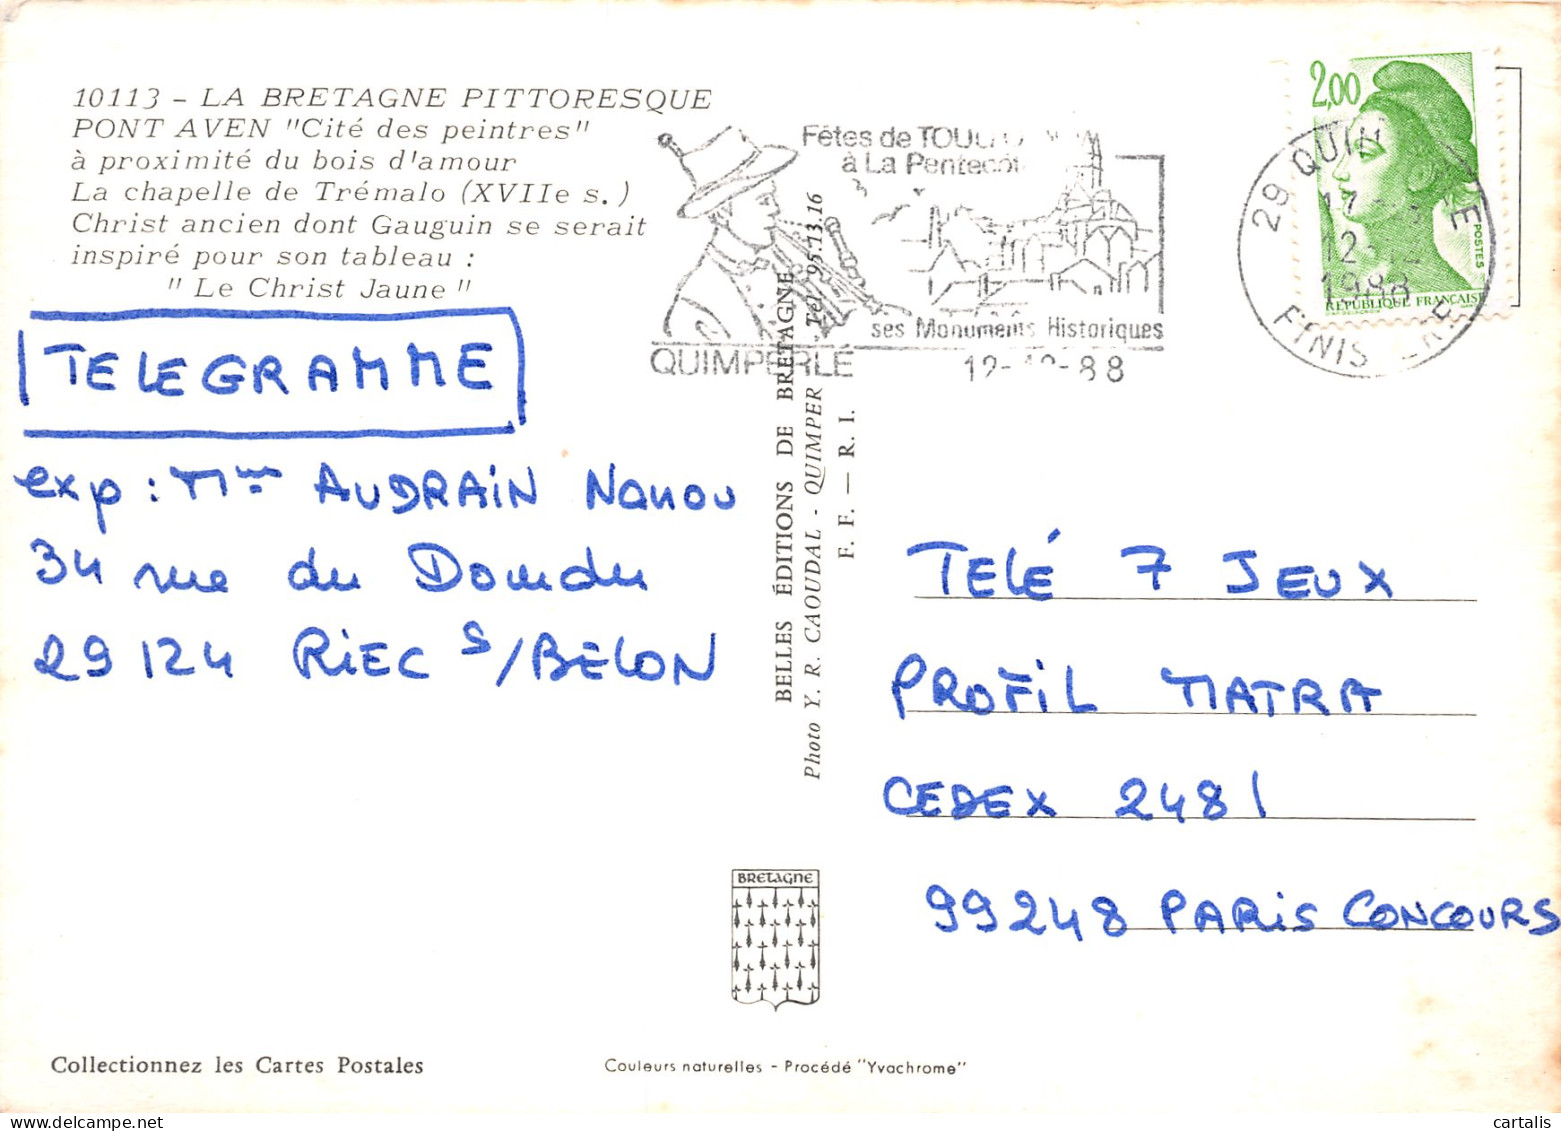 10113 - LA BRETAGNE PITTORESQUE
PONT AVEN "Cité des peintres"
à proximité du bois d'amour
La chapelle de Trémalo (XVIIe s.)
Christ ancien dont Gauguin se serait
inspiré pour son tableau :
" Le Christ Jaune "
TELEGRAMME
exp : Mme AUDRAIN Nanou
34 rue du Dourdu
29124 RIEC S/BELON
Fêtes de
à La Pentecôte
ses Monuments Historiques
QUIMPERLÉ
12-12-88
2,00
POSTES
RÉPUBLIQUE FRANÇAISE
29 QUIMPERLE
12-12
1988
FINISTERE
BELLES ÉDITIONS DE BRETAGNE
Photo Y. R. CAOUDAL - QUIMPER - Tél. 95.13.16
F. F. — R. I.
TELÉ 7 JEUX
PROFIL MATRA
CEDEX 2481
99248 PARIS CONCOURS
BRETAGNE
Collectionnez les Cartes Postales
Couleurs naturelles - Procédé "Yvachrome"
delcampe.net
cartalis